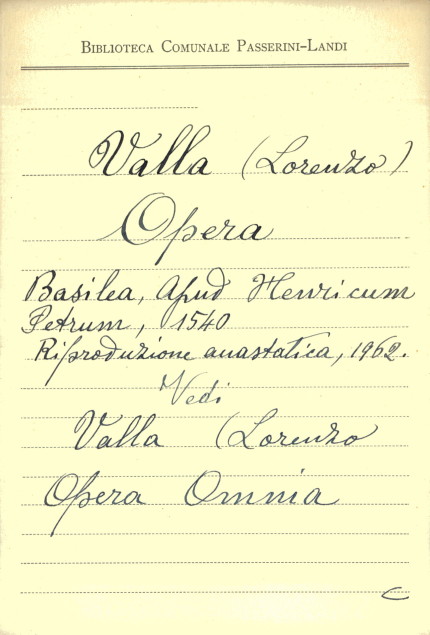 BIBLIOTECA COMUNALE PASSERINI-LANDI
Valla (Lorenzo)
Opera
Basilea, apud Henricum
Petrum, 1540
Riproduzione anastatica, 1962.
Vedi
Valla (Lorenzo
Opera Omnia